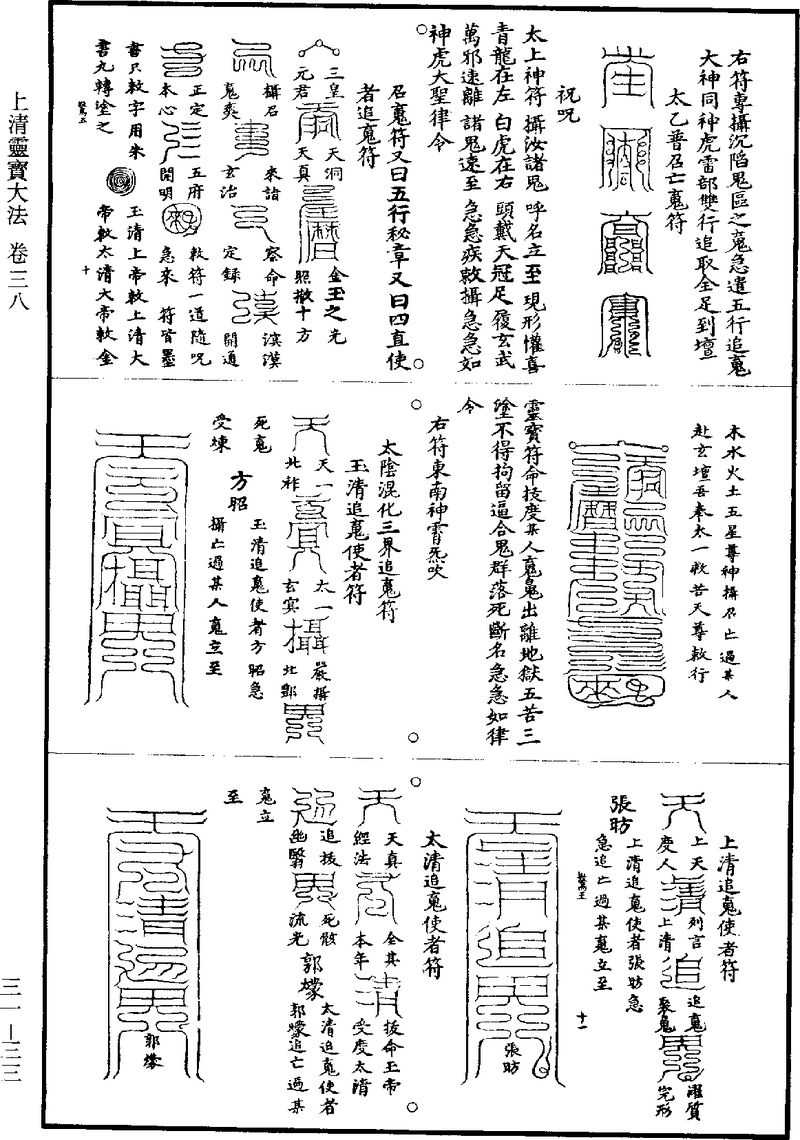 上清靈寶大法 卷三八
三一—三三
右符專攝沉陷鬼區之䰟急遣五行追䰟
大神同神虎雷部雙行追取全足到壇
太乙普召亡䰟符
祝呪
太上神符 攝汝諸鬼 呼名立至 現形懽喜
青龍在左 白虎在右 頭戴天冠 足履玄武
萬邪速離 諸鬼遠至 急急疾敕攝急急如
神虎大聖律令
召䰟符又曰五行秘章又曰四直使
者追䰟符
三皇
元君
天洞
天真
金玉之光
照徹十方
攝召
䰟爽
來詣
玄治
察命
定録
滇漠
開通
正定
本心
五府
開明
敕符一道隨呪
急來 符皆墨
書只敕字用朱
書丸轉塗之
玉清上帝敕上清大
帝敕太清大帝敕金
十
木水火土五星尊神攝召亡過某人
赴玄壇吾奉太一救苦天尊敕行
靈寶符命拔度某人䰟鬼出離地獄五苦三
塗不得拘留逼合鬼群落死斷名急急如律
令
右符東南神霄炁吹
太陰混化三界追䰟符
玉清追䰟使者符
天一
北祚
太一
玄冥
嚴攝
北酆
死䰟
受煉
方昭
玉清追䰟使者方昭急
攝亡過某人䰟立至
上清追䰟使者符
上天
度人
列言
上清
追䰟
聚鬼
濯質
完形
張昉
上清追䰟使者張昉急
急追亡過某䰟立至
十一
張昉
太清追䰟使者符
天真
經法
全其
本年
拔命玉帝
受度太清
追拔
幽翳
死骸
流光
郭㸐
太清追䰟使者
郭㸐追亡過某
䰟立
至
郭㸐